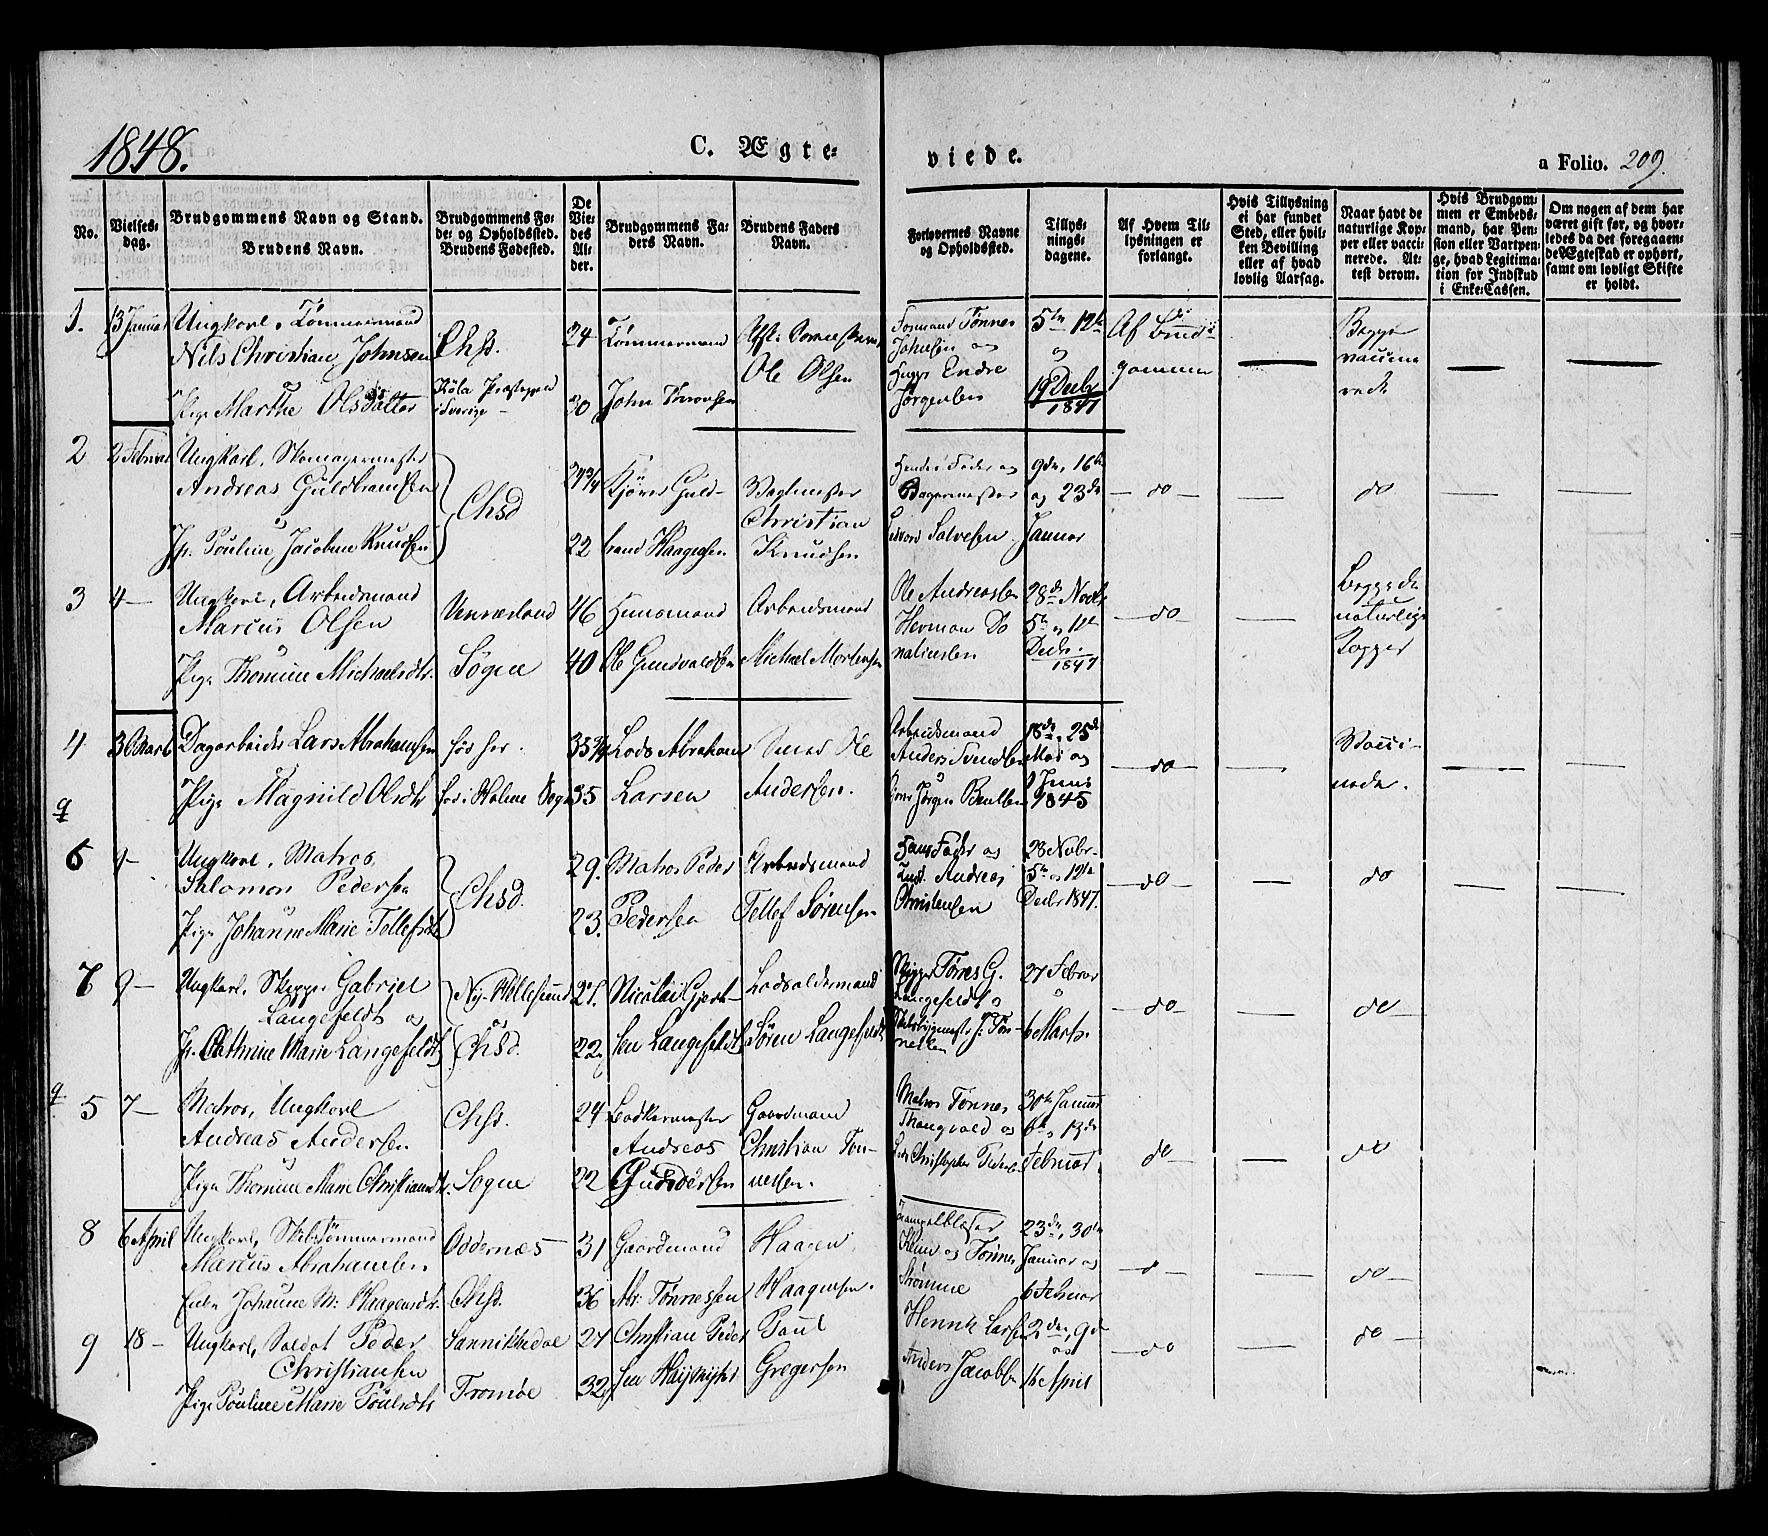 1848.
C. Ægte-
viede.
a Folio. 209.
No.
Vielses-
dag.
Brudgommens Navn og Stand.
Brudens Navn.
Brudgommens Fø-
de- og Opholdssted.
Brudens Fødested.
De
Vie-
des
Al-
der.
Brudgommens Fa-
ders Navn.
Brudens Faders
Navn.
Forlovernes Navne
og Opholdssted.
Tillys-
nings-
dagene.
Af Hvem Til-
lysningen er
forlangt.
Hvis Tillysning
ei har fundet
Sted, eller hvil-
ken Bevilling
eller af hvad
lovlig Aarsag.
Naar havt de
naturlige Kop-
per eller vacci-
nerede. At-
test derom.
Hvis Brudgom-
men er Embeds-
mand, har Pen-
sion eller Vartpen-
ge, hvad Legitima-
tion for Indskud
i Enke-Cassen.
Om nogen af dem har
været gift før, og hvor-
ledes da det foregaaen-
de Ægteskab er ophørt,
samt om lovligt Skifte
er holdt.
1. 13 Januar Ungkarl, Tømmermand
Nils Christian Johnsen Chsd. 24 Tømmermand
Pige Marthe Olsdatter i Sverige 30 John
Ole Olsen
Formand Tønnes
Johnsen og
Endre
Jørgensen
5te 12te
og
19 Decbr
1847
Af Brud-
gommen
Begge
vaccine-
rede
2 2 Februar Ungkarl, Skomagermester
Andreas Guldbrandsen
Jfr. Pouline Jacobine Knudsen
Chsd
24 3/4
22 brand Haagensen
Christian
Knudsen
Hendes Fader og
Bagermester
Salvesen
9de, 16de
og 23de
Januar
do
do
3 4 Ungkarl, Arbeidsmand
Marcus Olsen
Pige Thomine Michaelsdtr.
Søgne
46 Huusmand
40 Ole Gundvaldsen
Arbeidsmand
Michael Mortensen
Ole Andreassen
Herman Do
natiussen
28de Novbr
5te og 12te
Decbr.
1847
do
Begge de
naturlige
Kopper
4 3 Marts Dagarbeider Lars Abrahamsen født her. 35 3/4 Lods Abraham
Pige Magnild Olsdtr født i Holme Sogn 35 Larsen
Smed Ole
Andersen.
Arbeidsmand
Anders Svendsen
Jørgen Bentsen
18de, 25de
Mai og
1 Juni
1845
do
Vacci-
nede.
q
6 4 Ungkarl, Matros
Salomon Pedersen
Pige Johanne Marie Tellefsdtr
Chsd.
29. Matros Peder
23. Pedersen
Arbeidsmand
Tellef Sørensen
Hans Fader og
Andreas
Christensen
28 Novbr
5te og 12te
Decbr 1847.
do
do
7 9 Ungkarl, Skipper Gabriel
Langefeldt og
Jfr. Cathrine Marie Langefeldt
Ny-Hellesund
og
Chsd.
27. Nicolai Gjert-
22. sen Langefeldt
Lodsoldermand
Søren Langefeldt
Skipper Tønnes G.
Langefeldt og
27 Februar
6 Marts.
do
do
q 5 7 Matros, Ungkarl
Andreas Andersen
Pige Thomine Marie Christiansdtr.
Chsd.
Søgne
24 Bødkermester
Andreas
22 Gundersen
Gaardmand
Christian Tøn-
nessen.
Matros Tønnes
Thangvald og
Christopher Peders
30te Januar
6te og 13de
Februar
do
do
8 6 April Ungkarl, Skibstømmermand
Marcus Abrahamsen
Enke Johanne M: Haagensdtr.
Oddernæs
Chsd.
31 Gaardmand
36 Abr: Tønnessen
Haagen
Haagensen.
Klim og Tønnes
Strømme
23de, 30te
Januar og
6 Februar
do
do
9 18 Ungkarl, Soldat Peder
Christiansen
Pige Pouline Marie Poulsdtr
Sannikkedal
Tromøe
27 Christian Peder
32 sen
Poul
Gregersen
Henrik Larsen
Anders Jacobs
2den, 9de
og
16 April
do
do